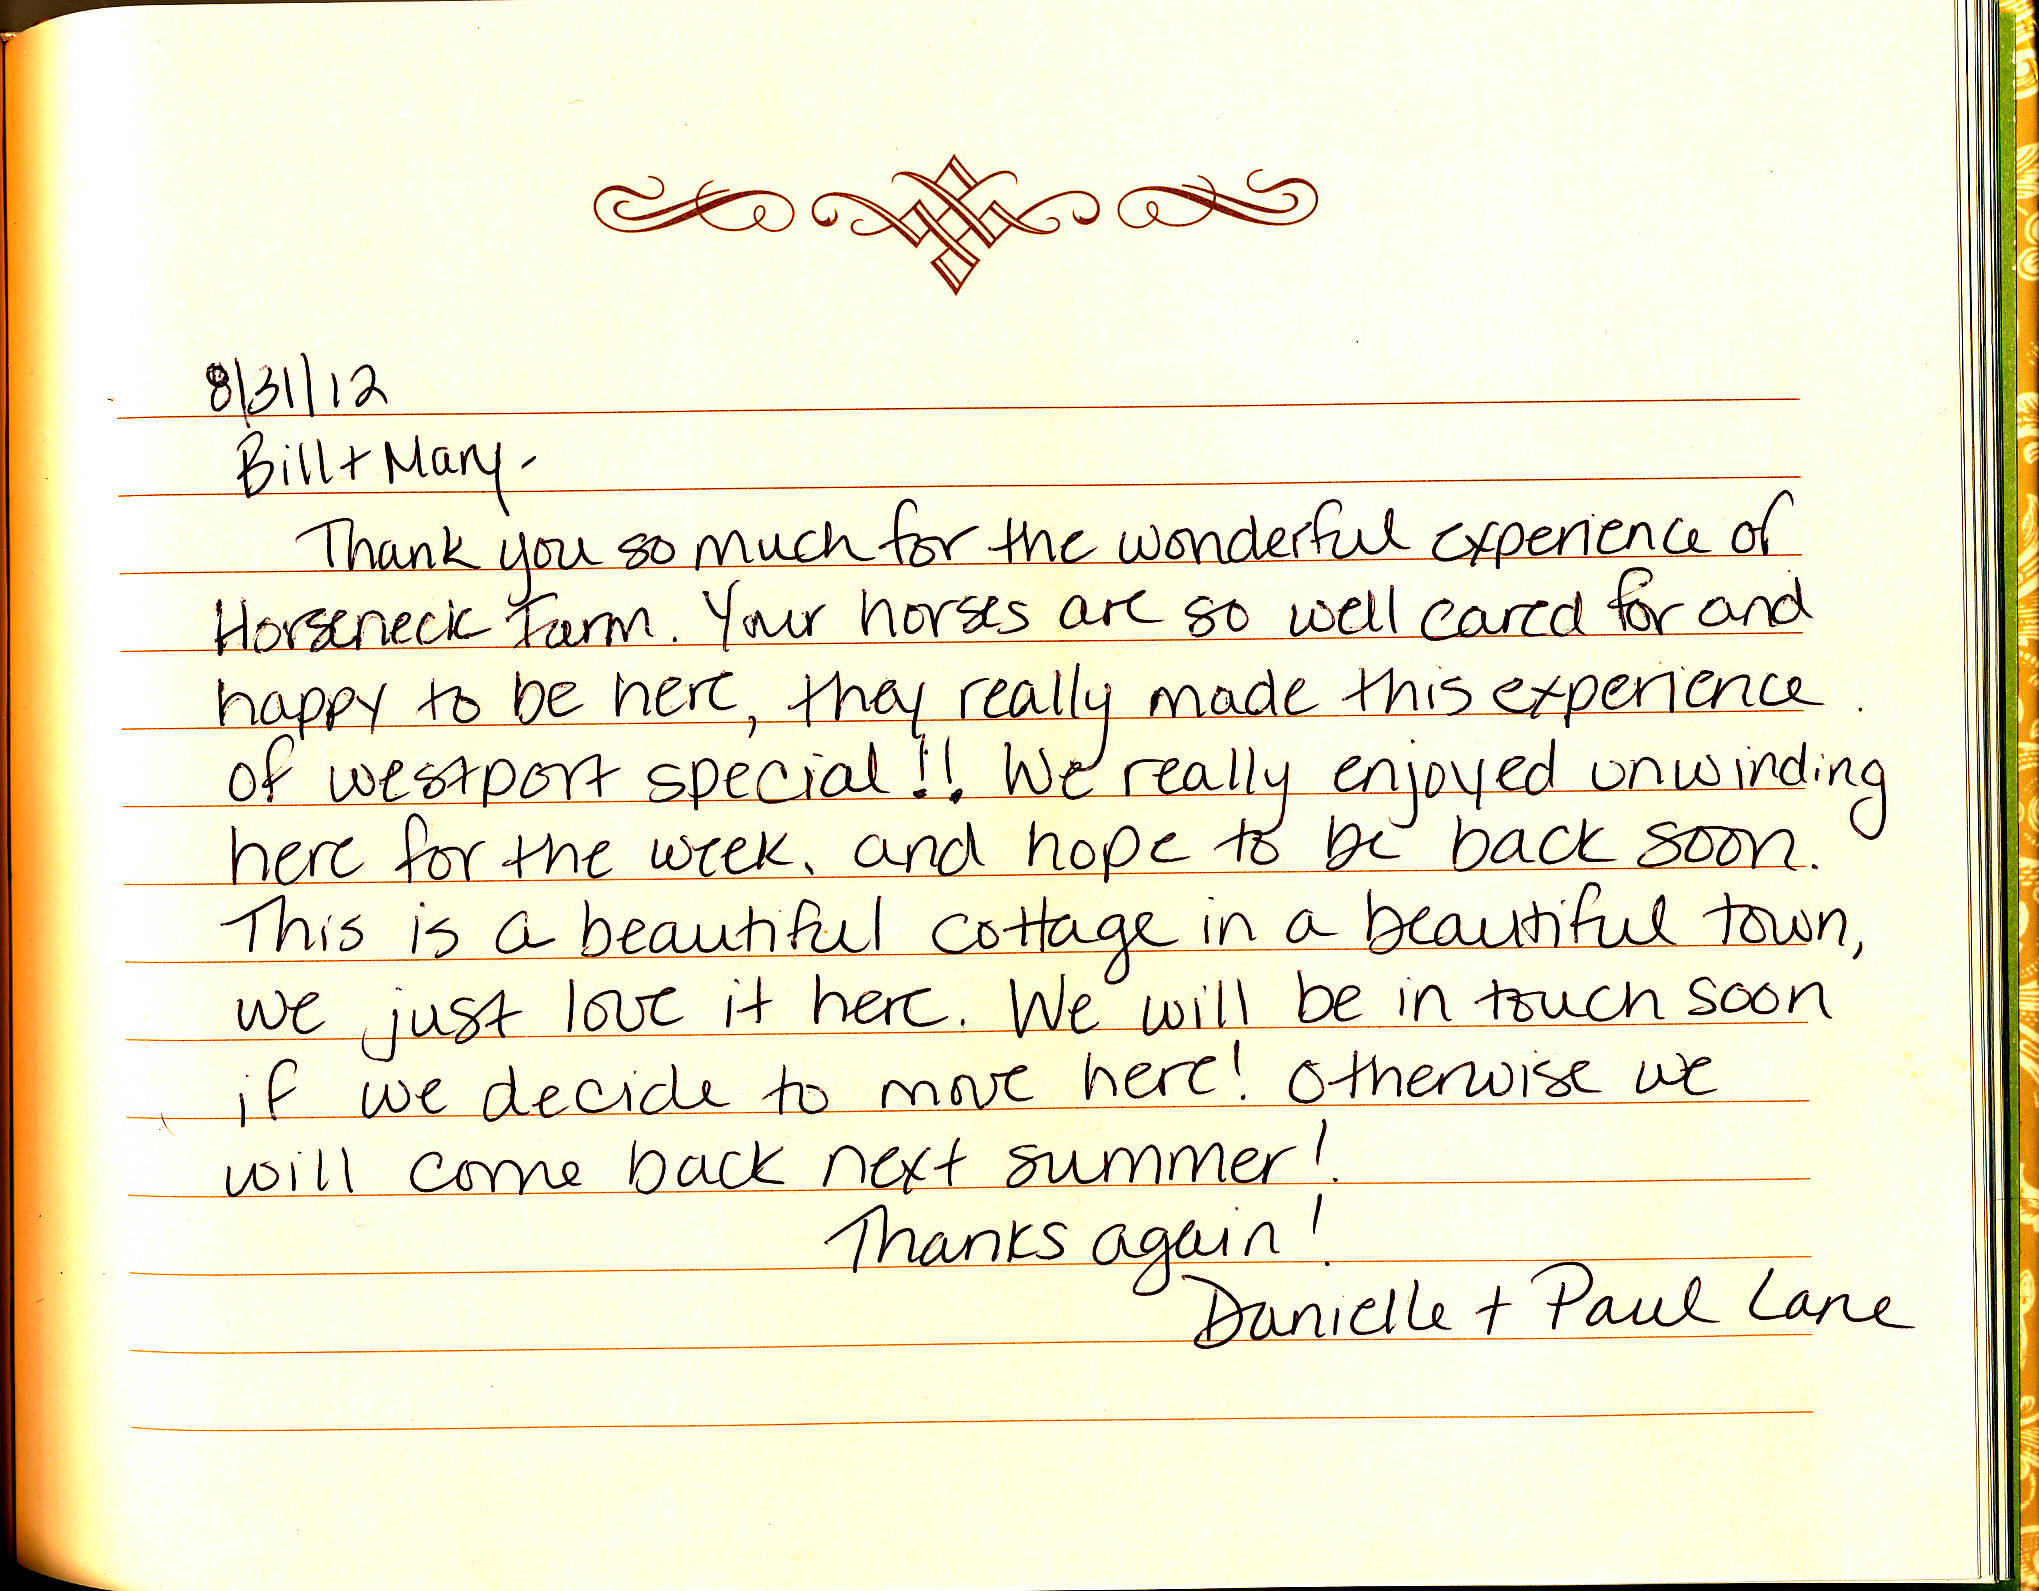 8/31/12
Bill + Mary -
Thank you so much for the wonderful experience of
Horseneck Farm. Your horses are so well cared for and
happy to be here, they really made this experience
of westport special!! We really enjoyed unwinding
here for the week, and hope to be back soon.
This is a beautiful cottage in a beautiful town,
we just love it here. We will be in touch soon
if we decide to move here! Otherwise we
will come back next summer!
Thanks again!
Danielle + Paul Lane